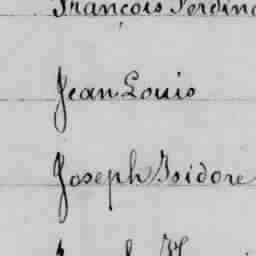 François Ferdin
Jean Louis
Joseph Isidore